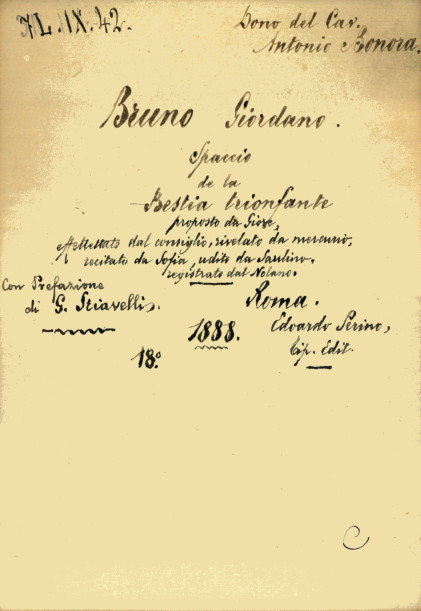 7L.IX.42.
Dono del Cav.
Antonio Bonora.
Bruno Giordano.
Spaccio
de la
Bestia trionfante
proposto da Giove,
Effettuato dal consiglio, rivelato da mercurio,
recitato da Sofia, udito da Saulino,
registrato dal Nolano.
Con Prefazione
di G. Stiavelli.
Roma.
1888.
Edoardo Perino,
Tip. Edit.
18.º
C